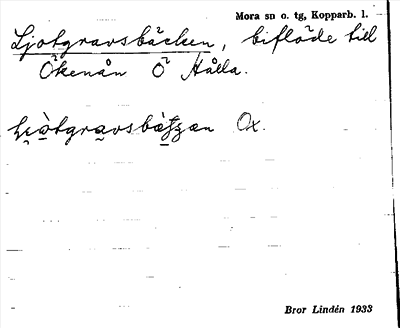 Mora sn o. tg, Kopparb. l.
Ljotgravsbäcken, biflöde till
Ökenån Ö Hålla.
Ox.
Bror Lindén 1933